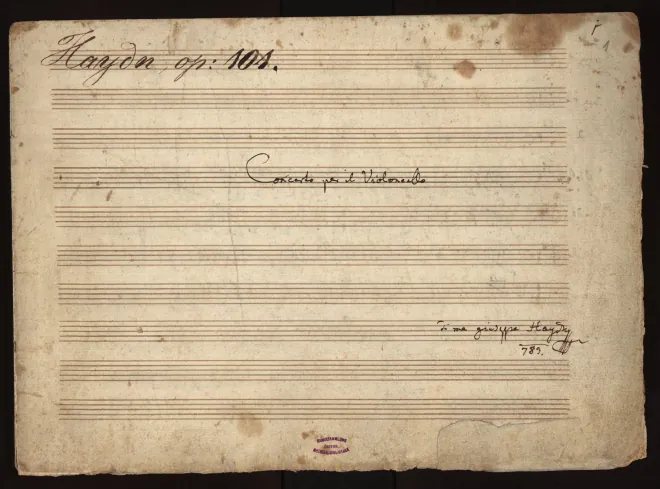 Haydn op: 101.
1
Concerto per il Violoncello
di me giuseppe Haydn
783.